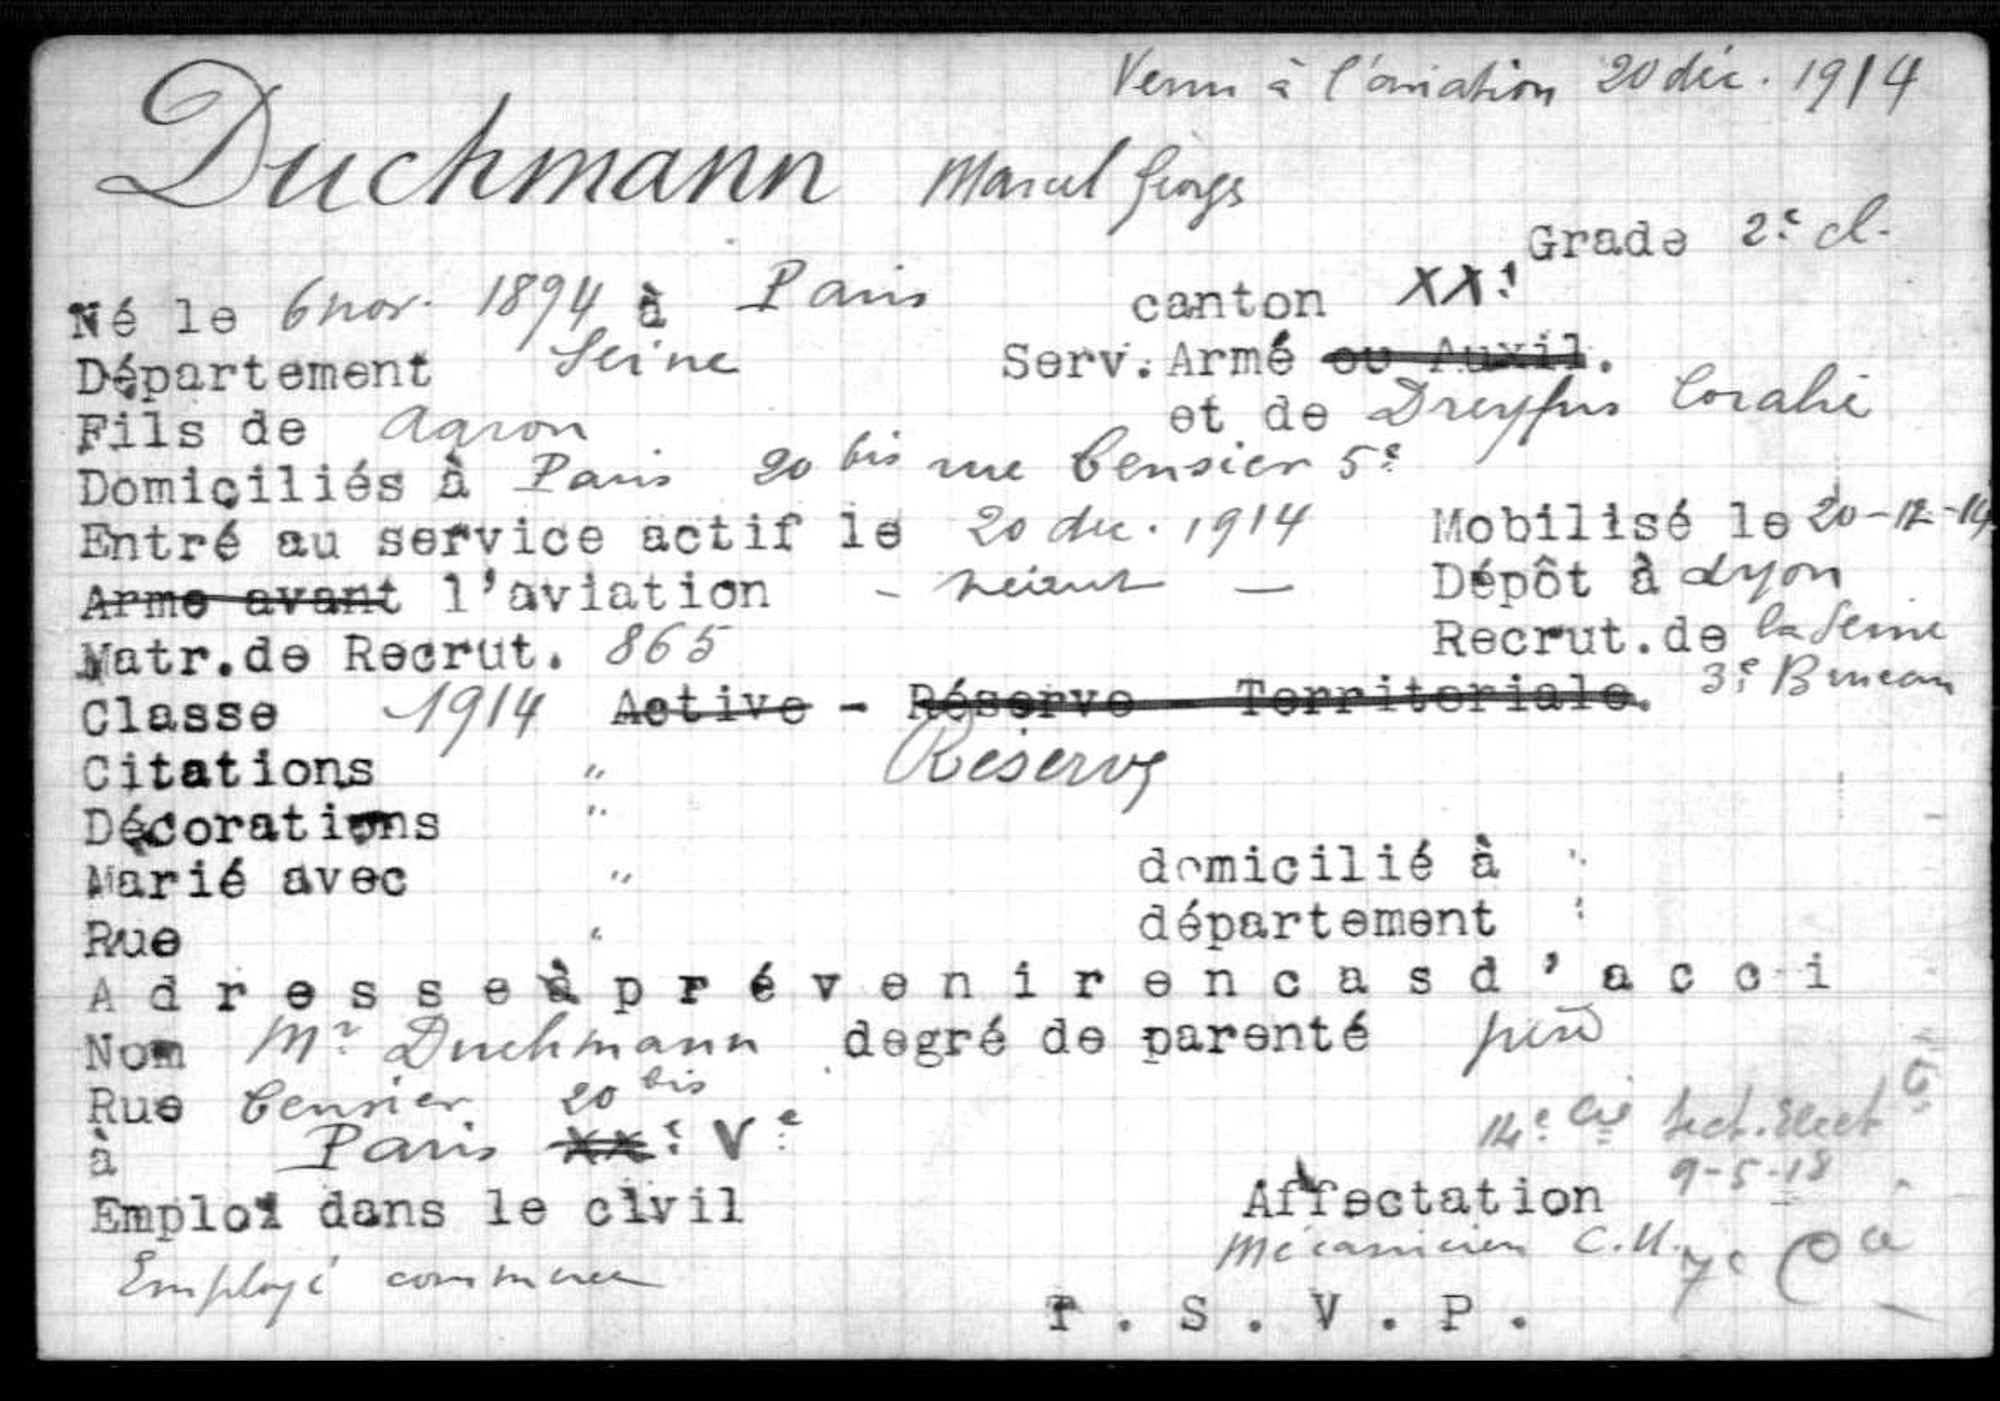 Venu à l'aviation 20 déc. 1914
Duchmann Marcel Georges
Grade 2e cl.
Né le 6 nov. 1894 à Paris canton XXe
Département Seine Serv. Armé ou Auxil.
Fils de Aaron et de Dreyfus Coralie
Domiciliés à Paris 20 bis rue Censier 5e
Entré au service actif le 20 dec. 1914 Mobilisé le 20-12-14
Arme avant l'aviation - Néant - Dépôt à Lyon
Matr. de Recrut. 865 Recrut. de la Seine
Classe 1914 Active - Réserve Territoriale. 3e Bureau
Citations " Réserve
Décorations "
Marié avec " domicilié à "
Rue " département "
Adresse à prévenir en cas d'acci
Nom Mr Duchmann degré de parenté père
Rue Censier 20 bis
à Paris XXe Ve
14e Cie Sect. Elect
9-5-18
Emploi dans le civil Affectation
Employé commerce Mécanicien C.U. 7e Cie
P.S.V.P.